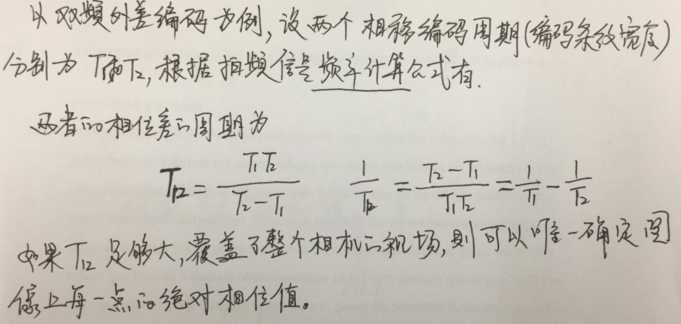 以双频外差编码为例,设两个相移编码周期(编码条纹宽度)
分别为T1和T2,根据拍频信号频率计算公式有.
两者的相位差的周期为
T12 = T1T2 / (T2 - T1)    1/T12 = (T2 - T1) / (T1T2) = 1/T1 - 1/T2
如果T12足够大,覆盖了整个相机的视场,则可以唯一确定图
像上每一点的绝对相位值。